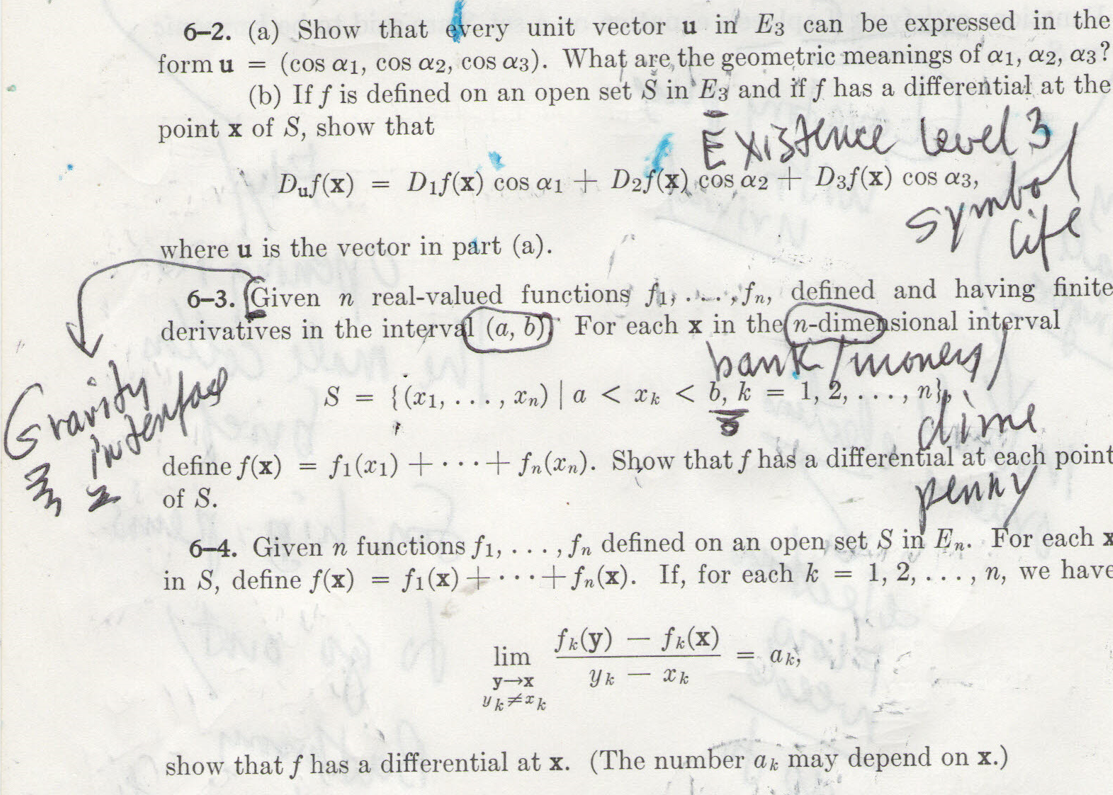 6–2. (a) Show that every unit vector u in E₃ can be expressed in the
form u = (cos α₁, cos α₂, cos α₃). What are the geometric meanings of α₁, α₂, α₃?
(b) If f is defined on an open set S in E₃ and if f has a differential at the
point x of S, show that
Existence level 3
Dᵤf(x) = D₁f(x) cos α₁ + D₂f(x) cos α₂ + D₃f(x) cos α₃,
symbol
life
where u is the vector in part (a).
6–3. Given n real-valued functions f₁, . . . , fₙ, defined and having finite
derivatives in the interval (a, b). For each x in the n-dimensional interval
bank/money/
S = {(x₁, . . . , xₙ) | a < xₖ < b, k = 1, 2, . . . , n},
Gravity
interface
dime
define f(x) = f₁(x₁) + · · · + fₙ(xₙ). Show that f has a differential at each point
of S.
penny
6–4. Given n functions f₁, . . . , fₙ defined on an open set S in Eₙ. For each x
in S, define f(x) = f₁(x) + · · · + fₙ(x). If, for each k = 1, 2, . . . , n, we have
lim y→x yₖ≠xₖ (fₖ(y) − fₖ(x)) / (yₖ − xₖ) = aₖ,
show that f has a differential at x. (The number aₖ may depend on x.)